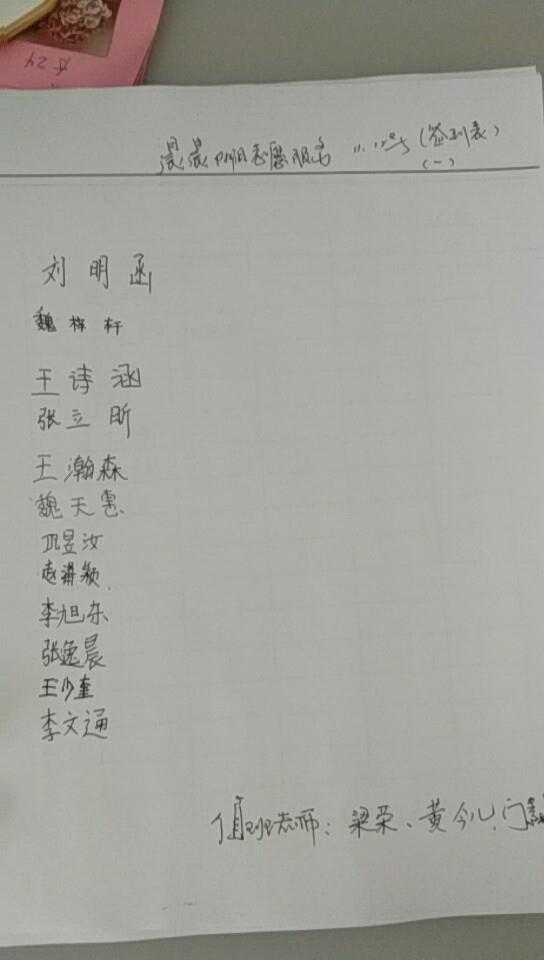 晨晨 志愿服务 11.12号 (签到表)
(一)
刘明函
魏梓轩
王诗涵
张立昕
王瀚森
魏天惠
昱汝
颖
李旭东
张逸晨
王少奎
李文通
值班老师：梁荣、黄今儿、门